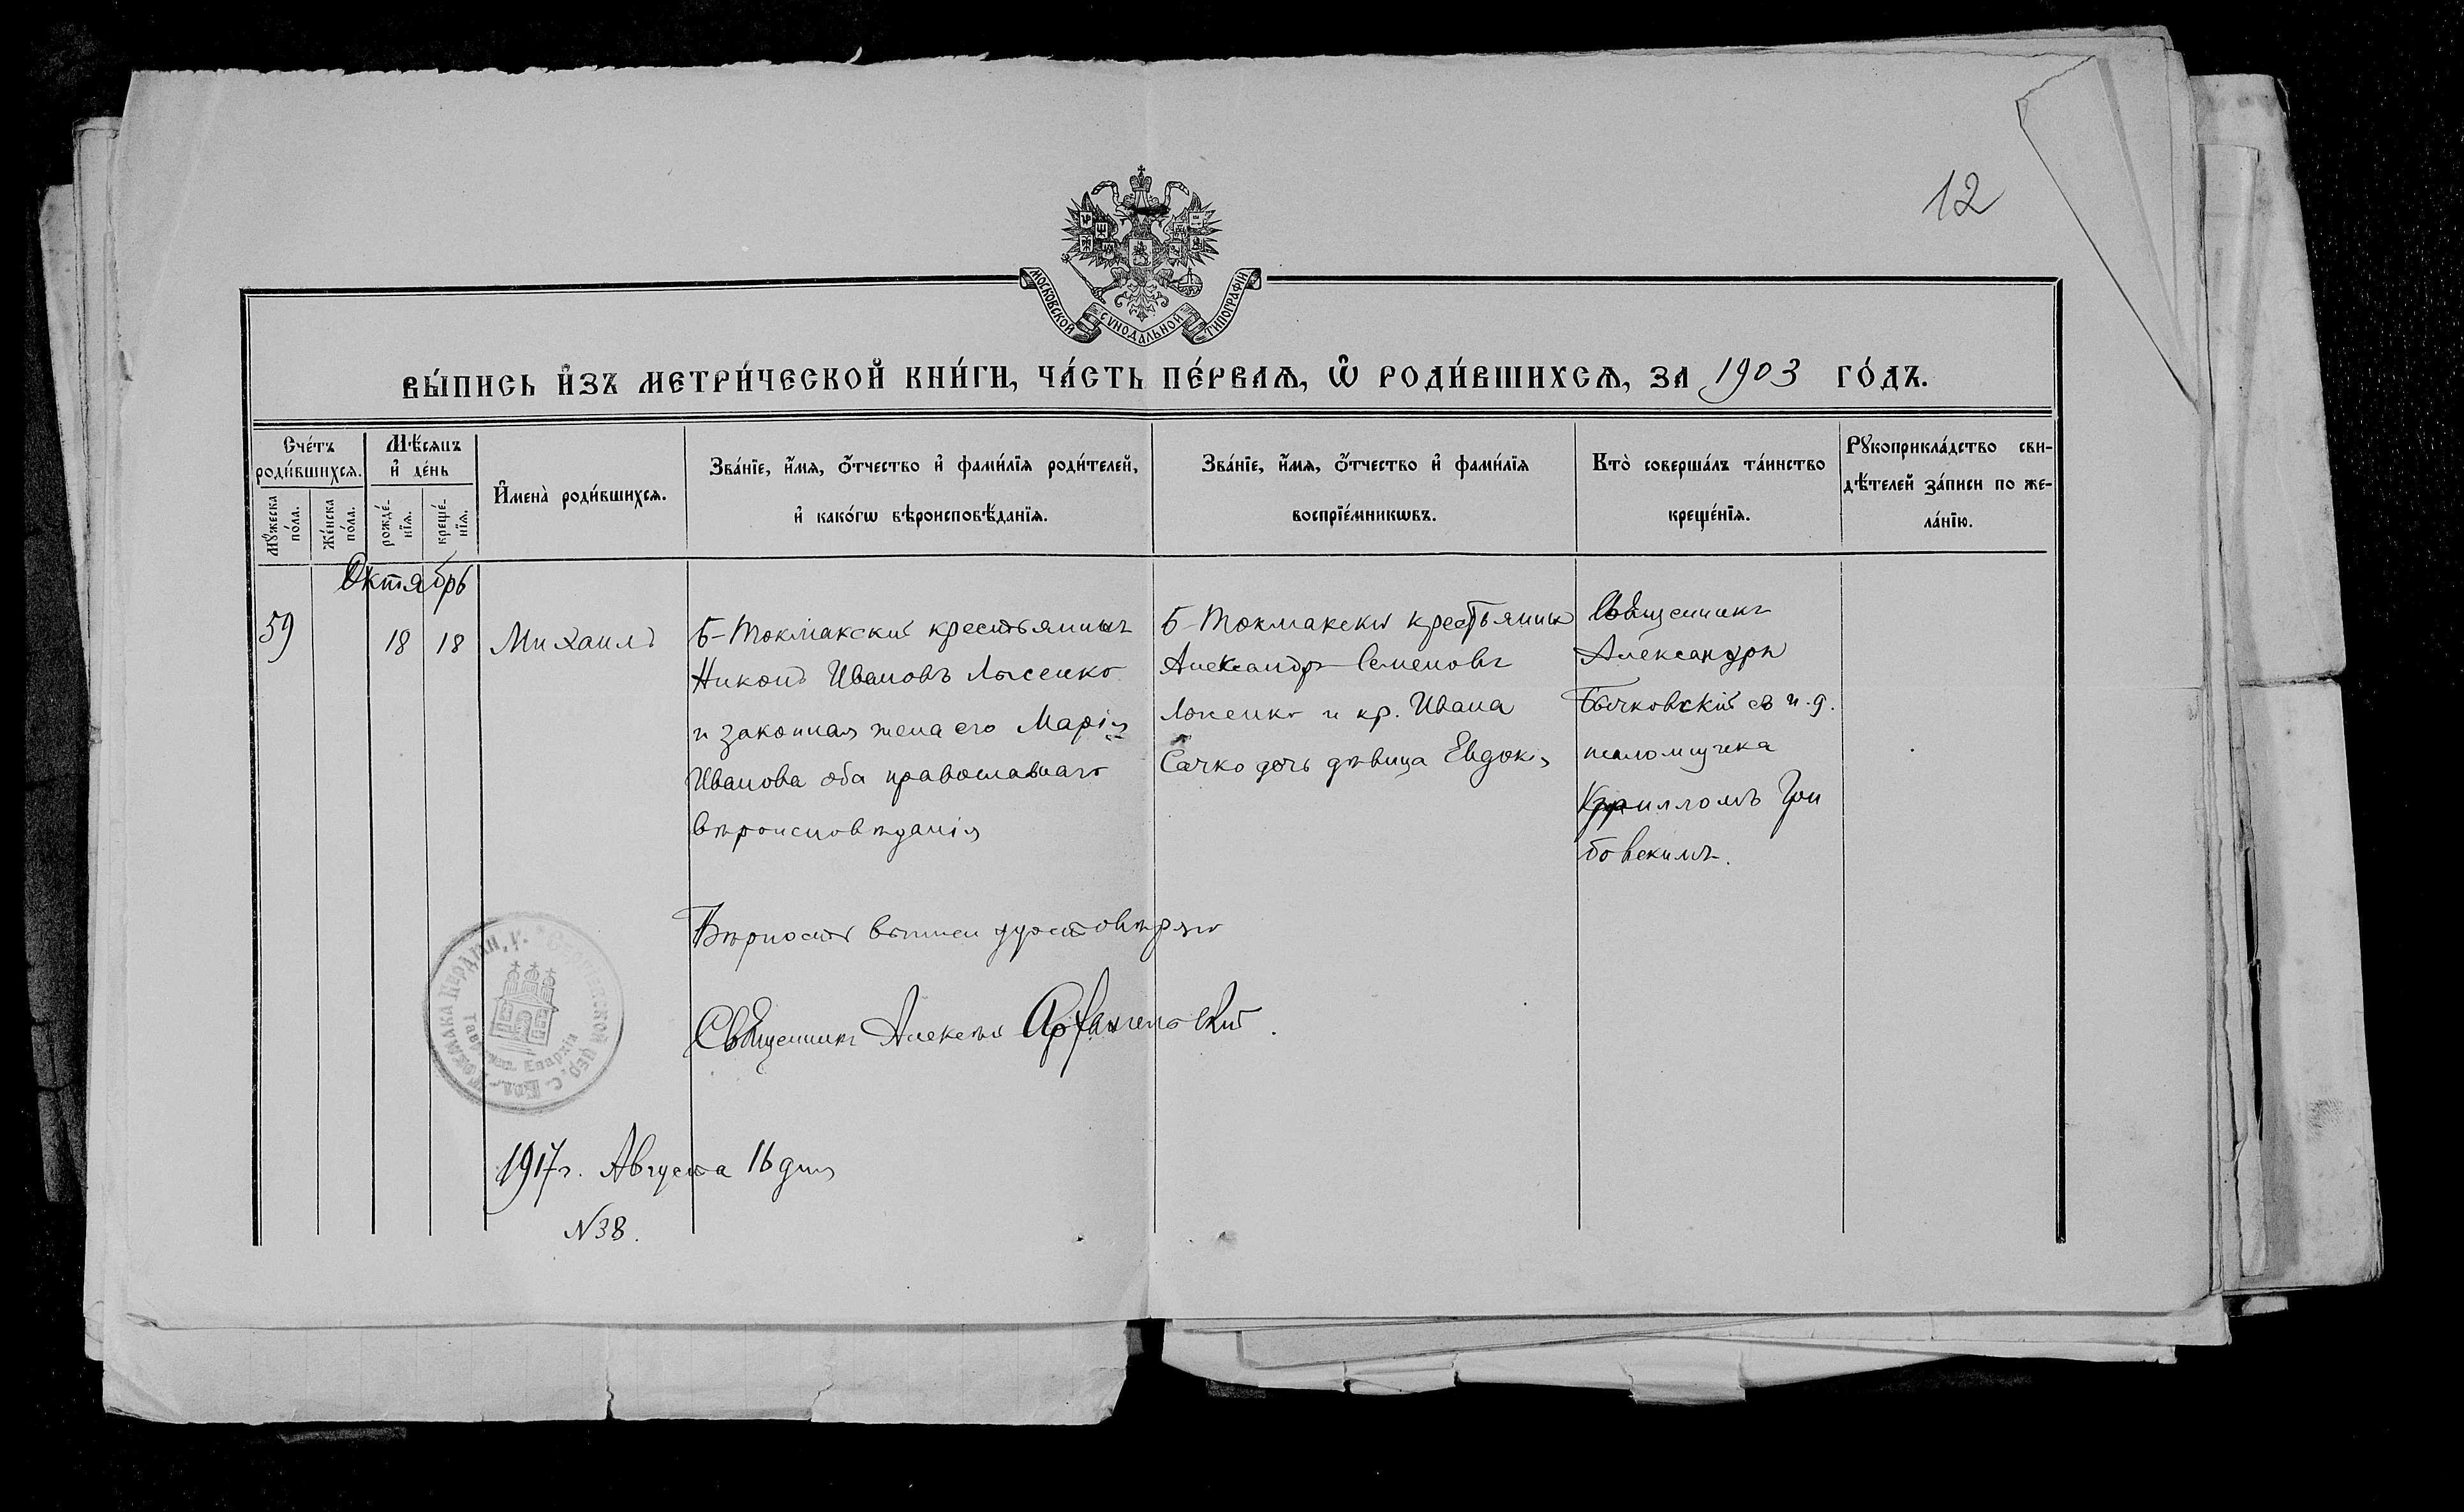 12
МОСКОВСКОЙ СѴНОДАЛЬНОЙ ТИПОГРАФІИ
ВЫ́ПИСЬ И҆ЗЪ МЕТРИ́ЧЕСКОЙ КНИ́ГИ, ЧА́СТЬ ПЕ́РВАѦ, Ѡ҆ РОДИ́ВШИХСѦ, ЗА 1903 ГО́ДЪ.
Сче́тъ роди́вшихсѧ.
Мꙋ́жеска по́ла.
Же́нска по́ла.
Мѣ́сѧцъ и҆ де́нь
рожде́нїѧ.
креще́нїѧ.
И҆мена̀ роди́вшихсѧ.
Зва́нїе, и҆́мѧ, ѻ҆́тчество и҆ фами́лїѧ роди́телей,
и҆ како́гѡ вѣроисповѣ́данїѧ.
Зва́нїе, и҆́мѧ, ѻ҆́тчество и҆ фами́лїѧ
воспрїе́мникѡвъ.
Кто̀ соверша́лъ та́инство
креще́нїѧ.
Рꙋкоприкла́дство сви-
дѣ́телей за́писи по же-
ла́нїю.
Октябрь
59
18
18
Михаилъ
Б-Токмакскій крестьянинъ
Никонъ Ивановъ Лысенко
и законная жена его Марія
Иванова оба православнаго
вѣроисповѣданія
Б-Токмакскій крестьянинъ
Александръ Семеновъ
Лысенко и кр. Ивана
Сачко дочь дѣвица Евдокія
Священникъ
Александръ
Бычковскій съ и.д.
псаломщика
Кирилломъ Гри
бовскимъ.
Вѣрность выписи удостовѣряю
Священникъ Алексѣй Архангельскій.
Георгіевской цер. с. Бол.-Токмака Бердян. у.
Таврич. Епархіи
1917 г. Августа 16 дня
N 38.